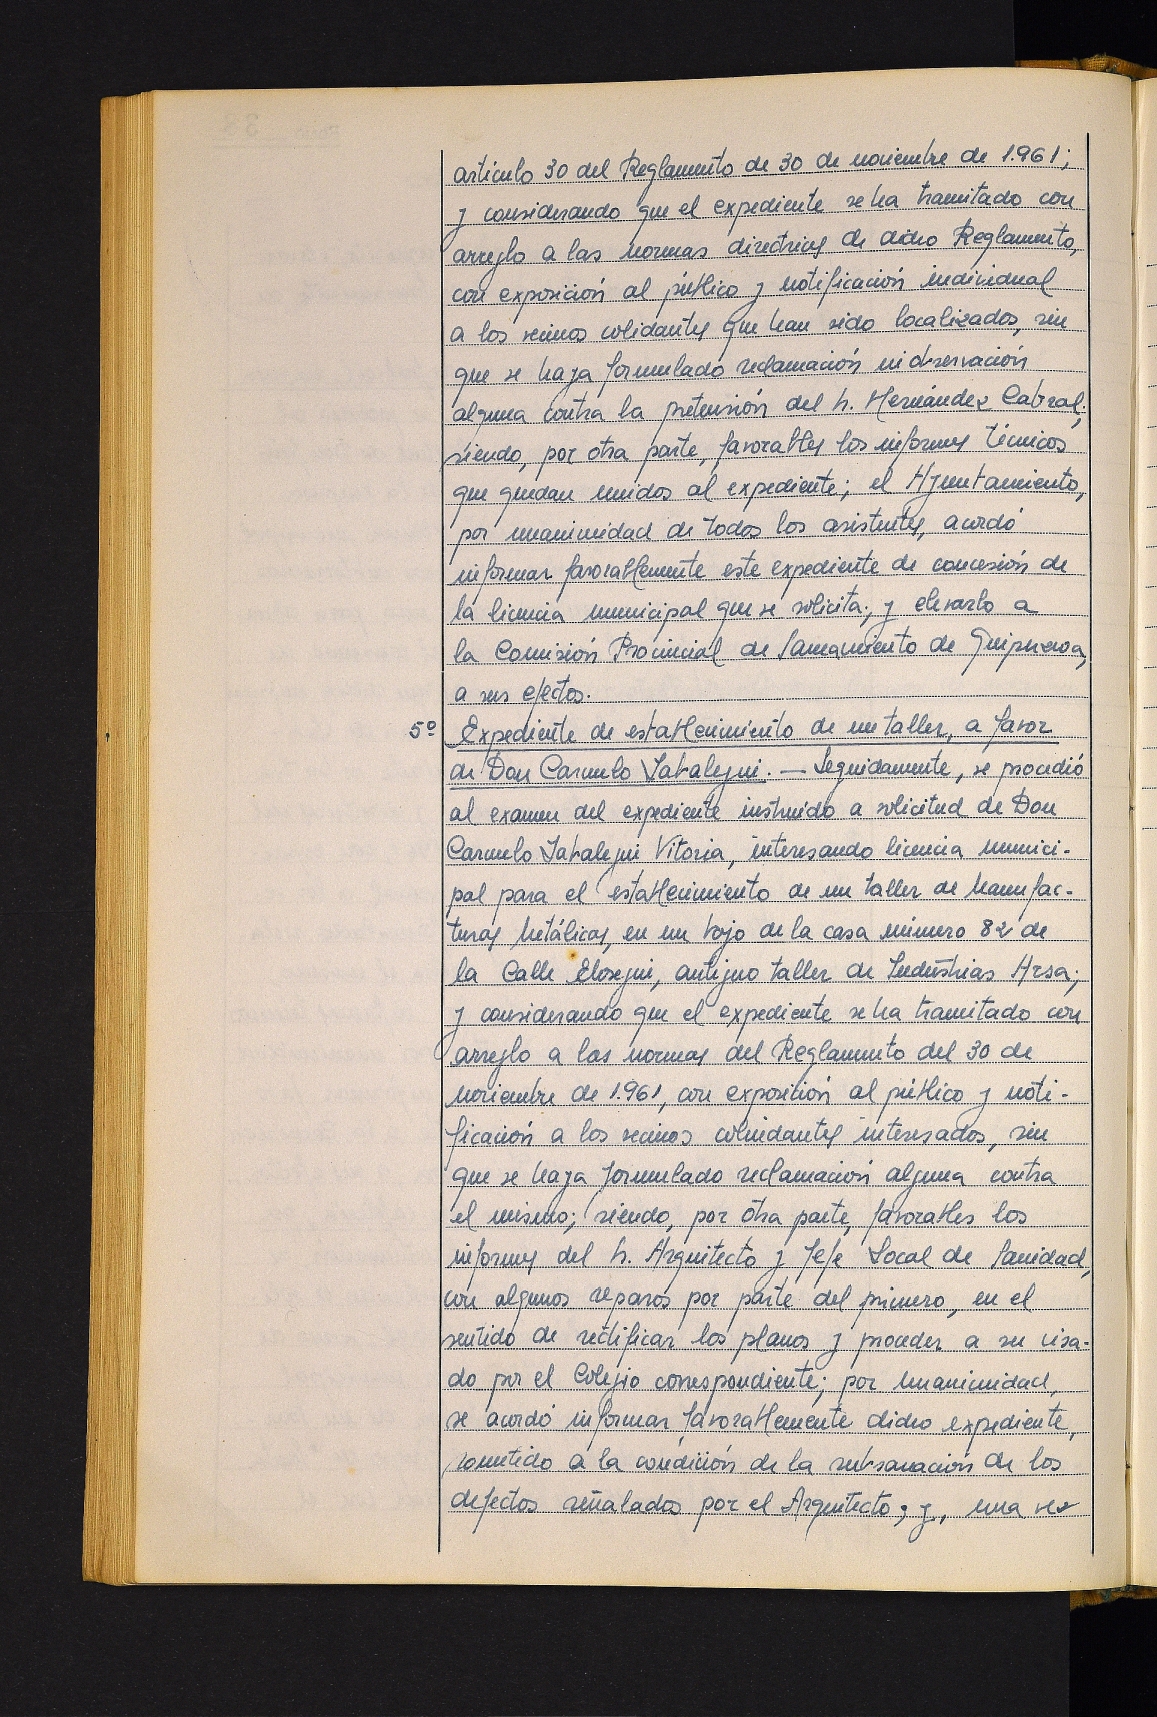 artículo 30 del Reglamento de 30 de noviembre de 1.961;
y considerando que el expediente se ha tramitado con
arreglo a las normas directrices de dicho Reglamento,
con exposición al público y notificación individual
a los vecinos colidantes que han sido localizados, sin
que se haya formulado reclamación ni observación
alguna contra la pretensión del Sr. Hernández Cabral;
siendo, por otra parte, favorables los informes técnicos
que quedan unidos al expediente; el Ayuntamiento,
por unanimidad de todos los asistentes, acordó
informar favorablemente este expediente de concesión de
la licencia municipal que se solicita; y elevarlo a
la Comisión Provincial de Saneamiento de Guipuzcoa,
a sus efectos.
5º Expediente de establecimiento de un taller, a favor
de Don Carmelo Sabalegui. — Seguidamente, se procedió
al examen del expediente instruido a solicitud de Don
Carmelo Sabalegui Vitoria, interesando licencia munici-
pal para el establecimiento de un taller de Manufac-
turas Metálicas, en un bajo de la casa número 82 de
la Calle Elosegui, antiguo taller de Industrias Arsa;
y considerando que el expediente se ha tramitado con
arreglo a las normas del Reglamento del 30 de
noviembre de 1.961, con exposición al público y noti-
ficación a los vecinos colindantes interesados, sin
que se haya formulado reclamación alguna contra
el mismo; siendo, por otra parte, favorables los
informes del Sr. Arquitecto y Jefe Local de Sanidad,
con algunos reparos por parte del primero, en el
sentido de rectificar los planos y proceder a su visa-
do por el Colegio correspondiente; por unanimidad,
se acordó informar favorablemente dicho expediente,
sometido a la condición de la subsanación de los
defectos señalados por el Arquitecto; y, una vez